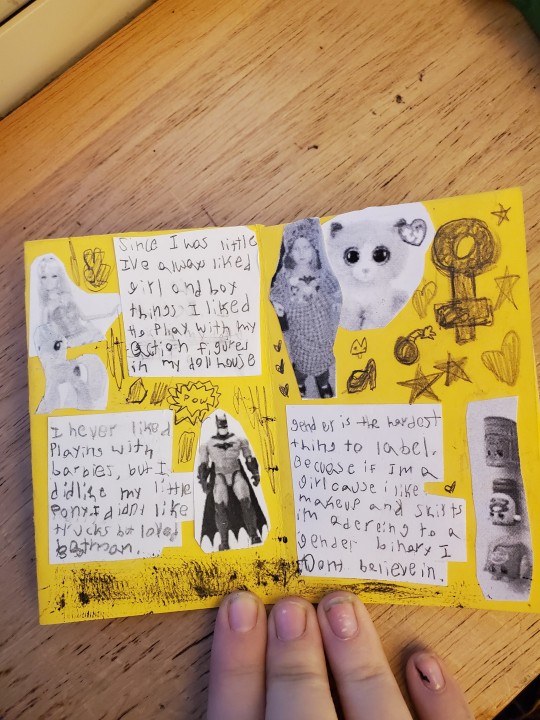 Since I was little
I've always liked
girl and boy
things I liked
to play with my
action figures
in my dollhouse
POW
I never liked
Playing with
barbies, but I
did like my little
Pony. I didnt like
trucks but loved
batman.
gender is the hardest
thing to label.
Because if Im a
girl cause i like
makeup and skirts
im adereing to a
gender binary I
Dont believe in.